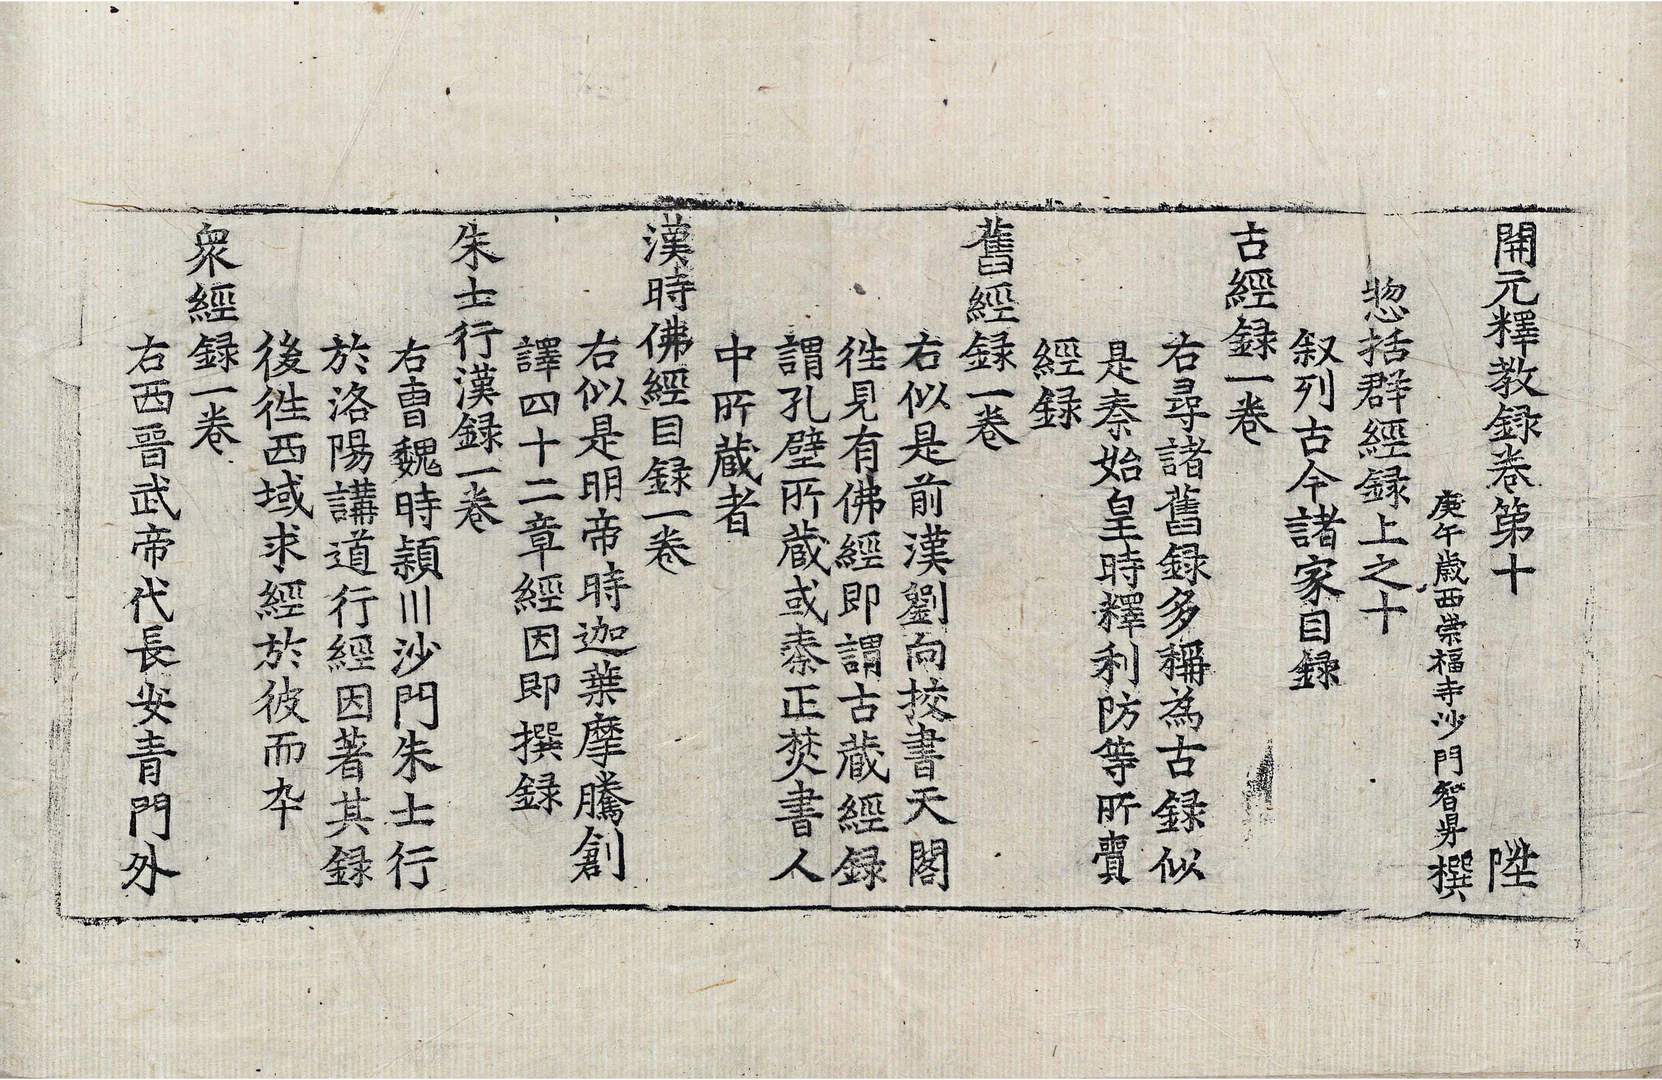 開元釋教録卷第十 陞
庚午歳西崇福寺沙門智昇撰
惣括群經録上之十
叙列古今諸家目録
古經録一卷
右尋諸舊録多稱為古録似
是秦始皇時釋利防等所賷
經録
舊經録一卷
右似是前漢劉向挍書天閣
徃見有佛經即謂古蔵經録
謂孔壁所蔵或秦正焚書人
中所蔵者
漢時佛經目録一卷
右似是明帝時迦葉摩騰創
譯四十二章經因即撰録
朱士行漢録一卷
右曹魏時頴川沙門朱士行
於洛陽講道行經因著其録
後徃西域求經於彼而卒
衆經録一卷
右西晉武帝代長安青門外